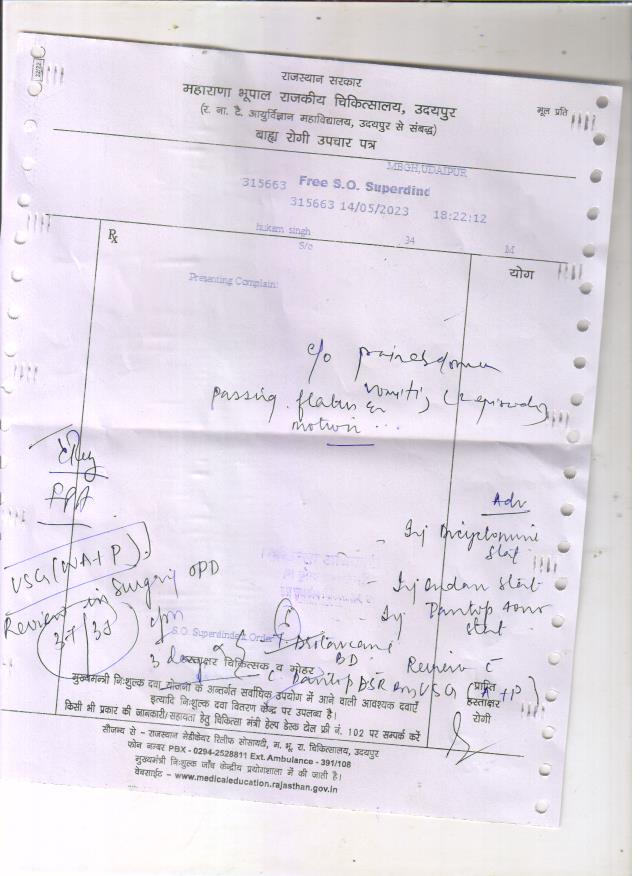 राजस्थान सरकार
महाराणा भूपाल राजकीय चिकित्सालय, उदयपुर
(र. ना. टै. आयुर्विज्ञान महाविद्यालय, उदयपुर से संबद्ध)
मूल प्रति
बाह्य रोगी उपचार पत्र
MBGH,UDAIPUR
315663 Free S.O. Superdind
315663 14/05/2023 18:22:12
hukam singh 34 M
S/o
Rx
योग
Presenting Complain:
c/o
vomiting (2 episodes)
passing flatus &
motion
X Ray
FPA
Adv
Inj Dicyclomine
stat
USG (WA+P)
Inj stat
Inj Pantop 40mg
stat
Review in Surgery OPD
S.O. Superdind & Order
BD
3 days
Review c
हस्ताक्षर चिकित्सक व मोहर
C. Pantop DSR USG (A+P)
प्राप्ति
हस्ताक्षर
रोगी
मुख्यमंत्री निःशुल्क दवा योजना के अन्तर्गत सर्वाधिक उपयोग में आने वाली आवश्यक दवाएँ
इत्यादि निःशुल्क दवा वितरण केन्द्र पर उपलब्ध है।
किसी भी प्रकार की जानकारी/सहायता हेतु चिकित्सा मंत्री हेल्प डेस्क टोल फ्री नं. 102 पर सम्पर्क करें
सौजन्य से - राजस्थान मेडीकेयर रिलीफ सोसायटी, म. भू. रा. चिकित्सालय, उदयपुर
फोन नम्बर PBX - 0294-2528811 Ext. Ambulance - 391/108
मुख्यमंत्री निःशुल्क जाँच केन्द्रीय प्रयोगशाला में की जाती है।
वेबसाईट - www.medicaleducation.rajasthan.gov.in